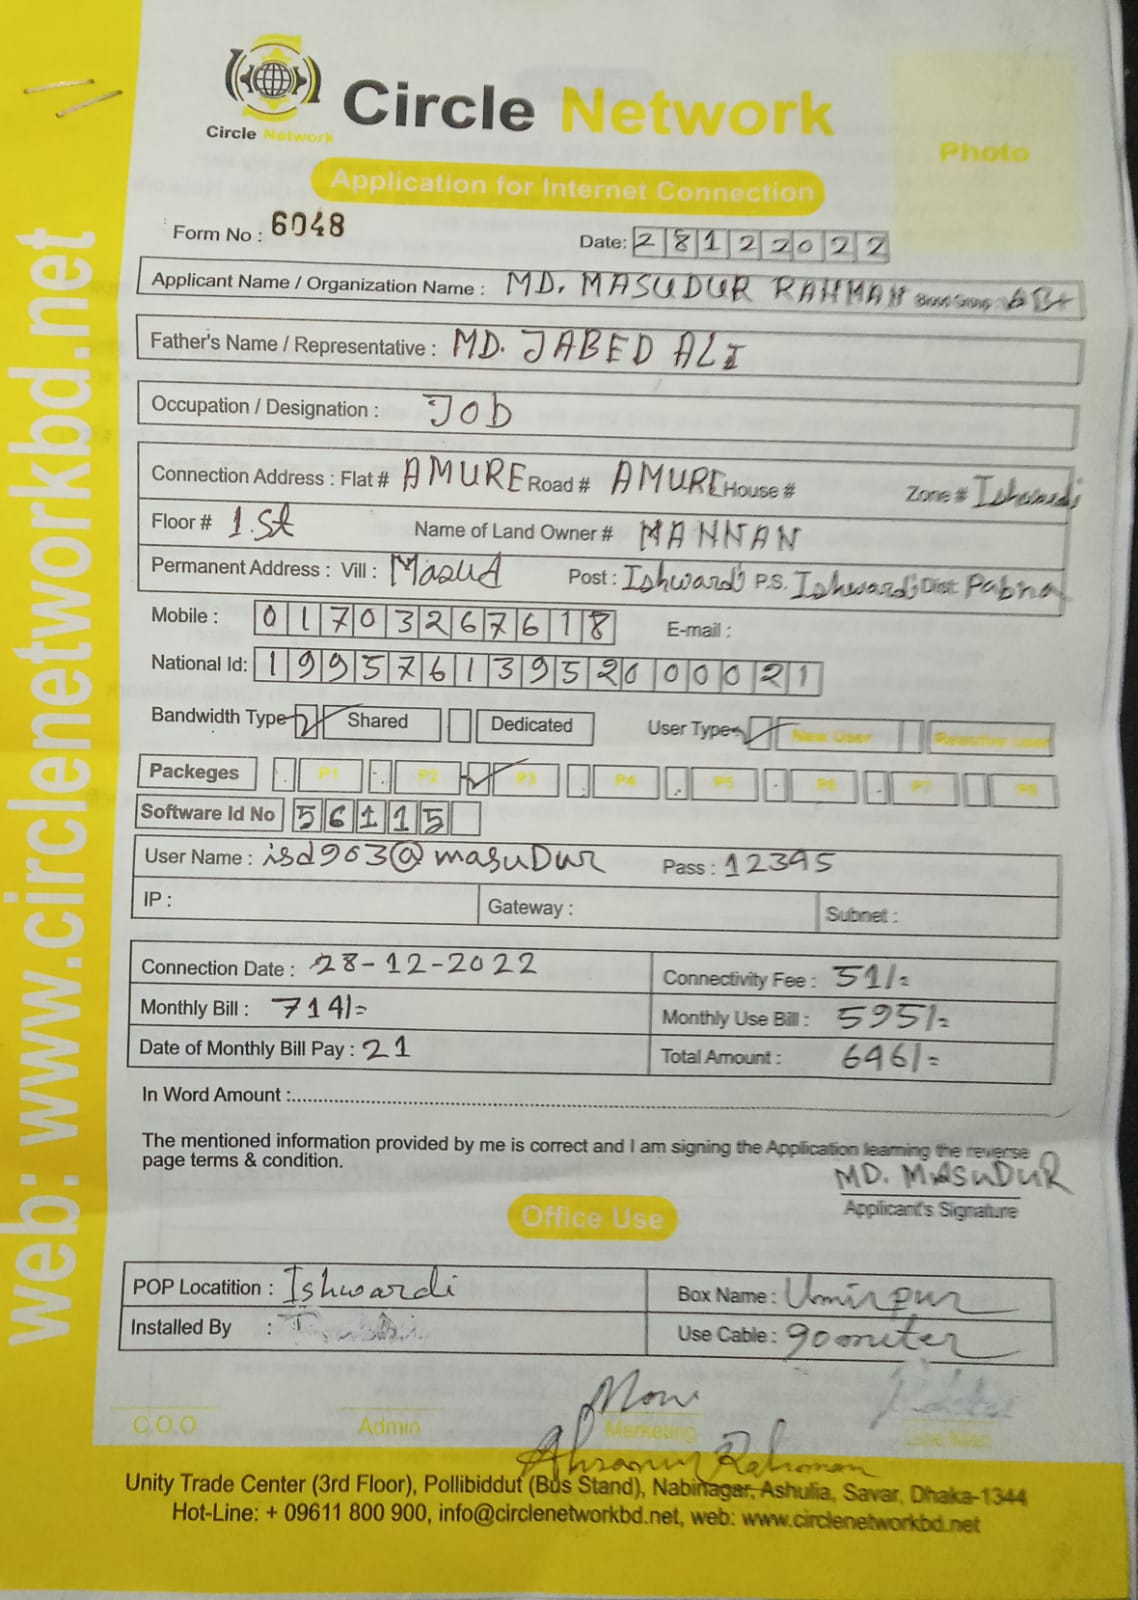 Circle Network
Circle Network
Photo
Application for Internet Connection
Form No : 6048
Date: 28122022
Applicant Name / Organization Name : MD. MASUDUR RAHMAN Blood Group: AB+
Father's Name / Representative : MD. JABED ALI
Occupation / Designation : JOB
Connection Address : Flat # AMURE Road # AMURE House # Zone # Ishwardi
Floor # 1.St Name of Land Owner # MANNAN
Permanent Address : Vill : Masud Post : Ishwardi P.S. Ishwardi Dist. Pabna
Mobile : 01703267618 E-mail :
National Id: 19957613952000021
Bandwidth Type Shared Dedicated User Type New User Reactive User
Packeges P1 P2 P3 P4 P5 P6 P7 P8
Software Id No 56115
User Name : isd963@masuDur Pass : 12345
IP : Gateway : Subnet :
Connection Date : 28-12-2022 Connectivity Fee : 51/=
Monthly Bill : 714/= Monthly Use Bill : 595/=
Date of Monthly Bill Pay : 21 Total Amount : 646/=
In Word Amount :
The mentioned information provided by me is correct and I am signing the Application learning the reverse
page terms & condition.
MD. MASUDUR
Applicant's Signature
Office Use
POP Locatition : Ishwardi Box Name : Umirpur
Installed By : Use Cable : 90 miter
C.O.O Admin Marketing Line Man
Ahsanur Rahman
Unity Trade Center (3rd Floor), Pollibiddut (Bus Stand), Nabinagar, Ashulia, Savar, Dhaka-1344
Hot-Line: + 09611 800 900, info@circlenetworkbd.net, web: www.circlenetworkbd.net
web: www.circlenetworkbd.net